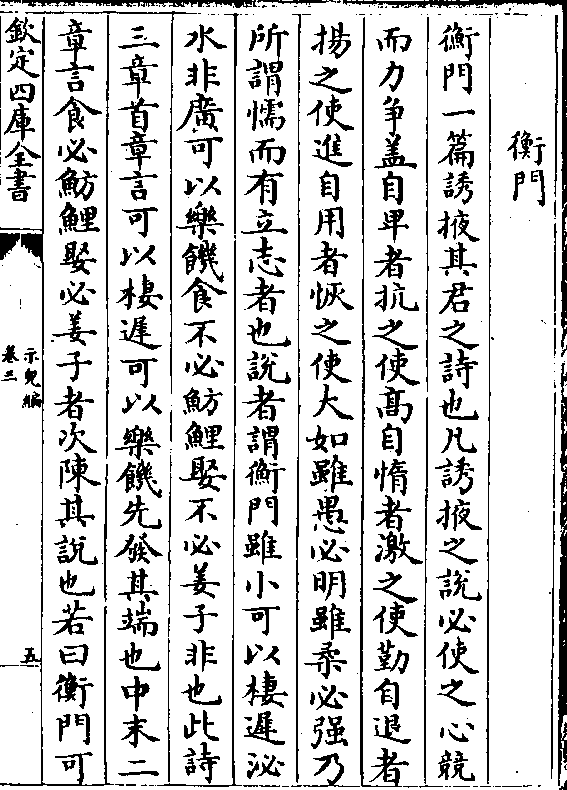 衡門
衡門一篇誘掖其君之詩也凡誘掖之說必使之心競
而力争盖自卑者抗之使髙自惰者激之使勤自退者
揚之使進自用者恢之使大如雖愚必明雖柔必强乃
所謂懦而有立志者也說者謂衡門雖小可以棲遲泌
水非廣可以樂饑食不必魴鯉娶不必姜子非也此詩
三章首章言可以棲遲可以樂饑先發其端也中末二
章言食必魴鯉娶必姜子者次陳其說也若曰衡門可
欽定四庫全書
示兒編
卷三
五